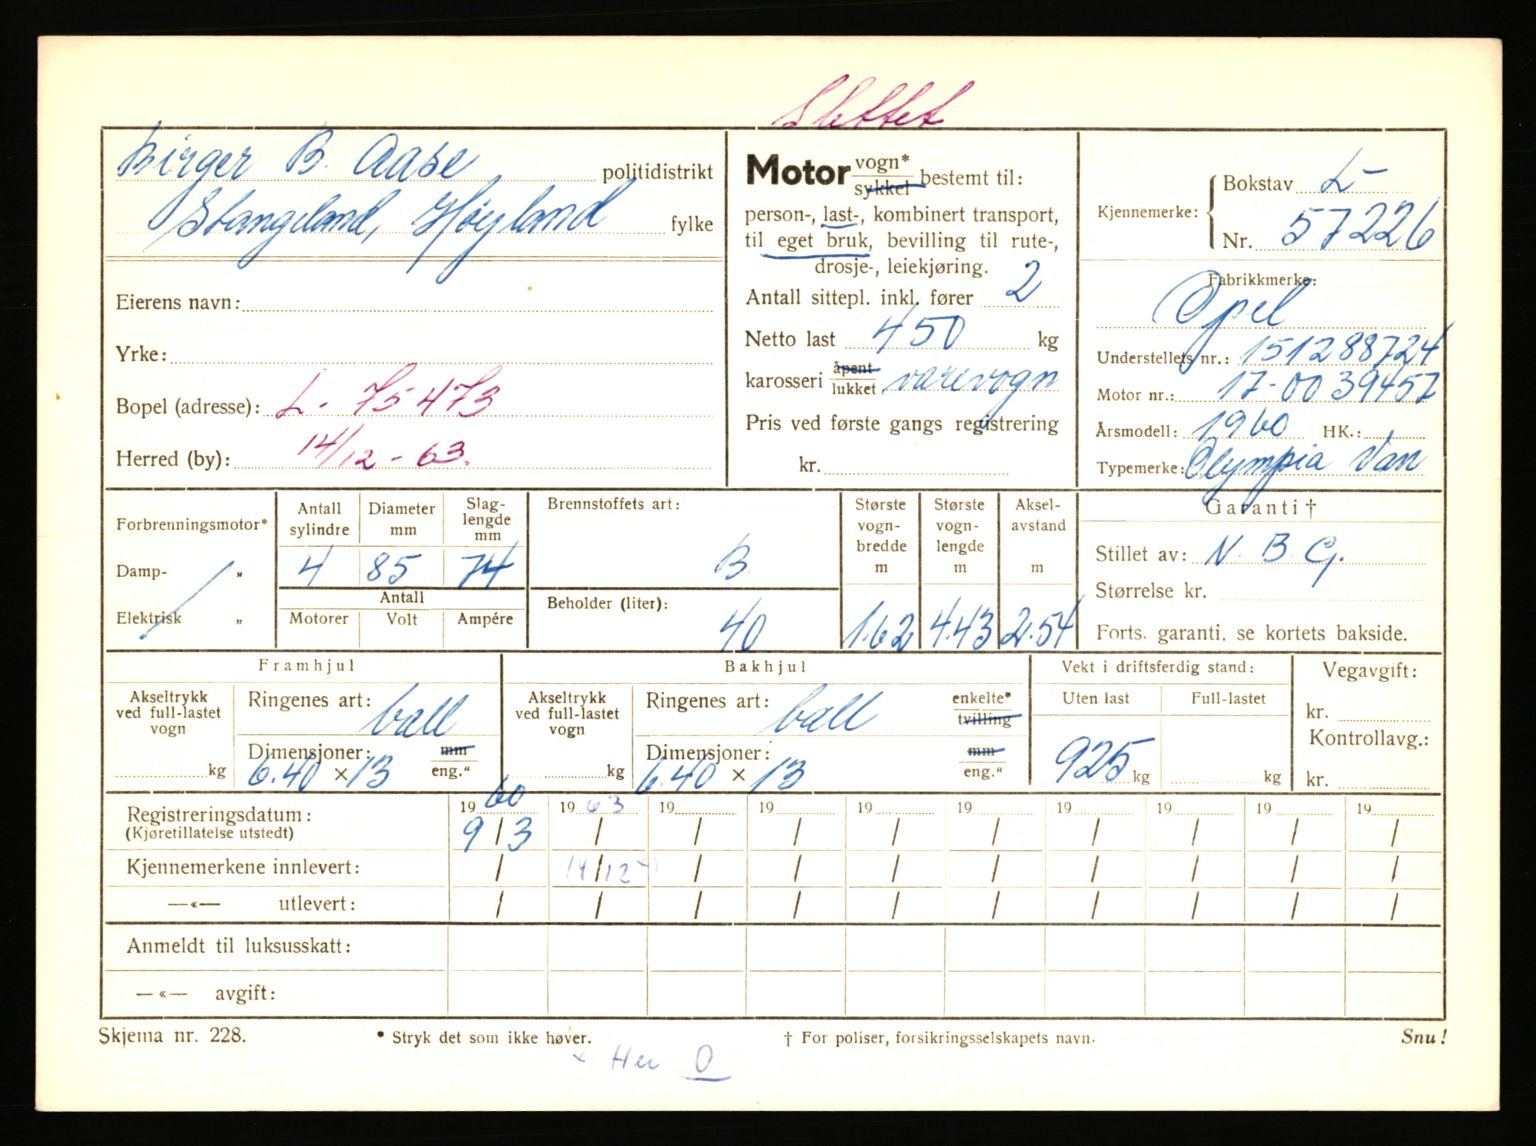 Slettet
Birger B. Aase politidistrikt
Stangeland, Høyland fylke
Eierens navn:
Yrke:
Bopel (adresse): L - 75473
Herred (by): 14/12 - 63.
Motor vogn* sykkel bestemt til:
person-, last-, kombinert transport,
til eget bruk, bevilling til rute-,
drosje-, leiekjøring.
Antall sittepl. inkl. fører 2
Netto last 450 kg
karosseri åpent lukket varevogn
Pris ved første gangs registrering
kr.
Kjennemerke: Bokstav L-
Nr. 57226
Fabrikkmerke:
Opel
Understellets nr.: 151288724
Motor nr.: 17-0039457
Årsmodell: 1960 HK.:
Typemerke: Olympia Van
Forbrenningsmotor*
Damp- "
Elektrisk "
Antall sylindre Diameter mm Slag-lengde mm
4 85 74
Antall
Motorer Volt Ampére
Brennstoffets art:
B
Beholder (liter):
40
Største vogn-bredde m Største vogn-lengde m Aksel-avstand m
1.62 4.43 2.54
Garanti †
Stillet av: N. B. G.
Størrelse kr.
Forts. garanti, se kortets bakside.
Framhjul
Akseltrykk ved full-lastet vogn
kg
Ringenes art: ball
Dimensjoner: mm
6.40 × 13 eng."
Bakhjul
Akseltrykk ved full-lastet vogn
kg
Ringenes art: ball enkelte* tvilling
Dimensjoner: mm
6.40 × 13 eng."
Vekt i driftsferdig stand:
Uten last Full-lastet
925 kg kg
Vegavgift:
kr.
Kontrollavg.:
kr.
Registreringsdatum: 1960 1963 19 19 19 19 19 19 19 19
(Kjøretillatelse utstedt) 9/3 / / / / / / / / /
Kjennemerkene innlevert: / 14/12 / / / / / / / /
—«— utlevert: / / / / / / / / / /
Anmeldt til luksusskatt:
—«— avgift:
Skjema nr. 228. * Stryk det som ikke høver. † For poliser, forsikringsselskapets navn. Snu!
× Her 0